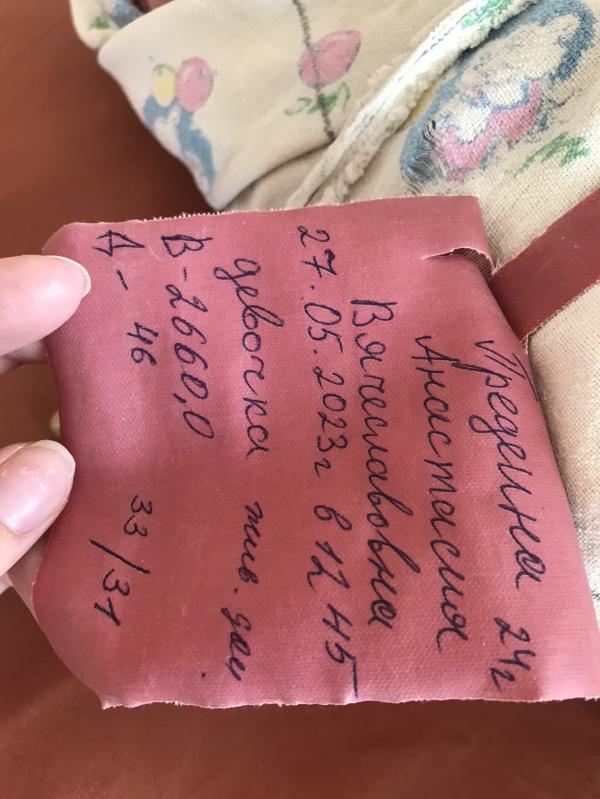 Предеина 24г
Анастасия
Вячеславовна
27.05.2023г в 12 45
девочка жив. дон.
В-2660,0
Д- 46 33/31